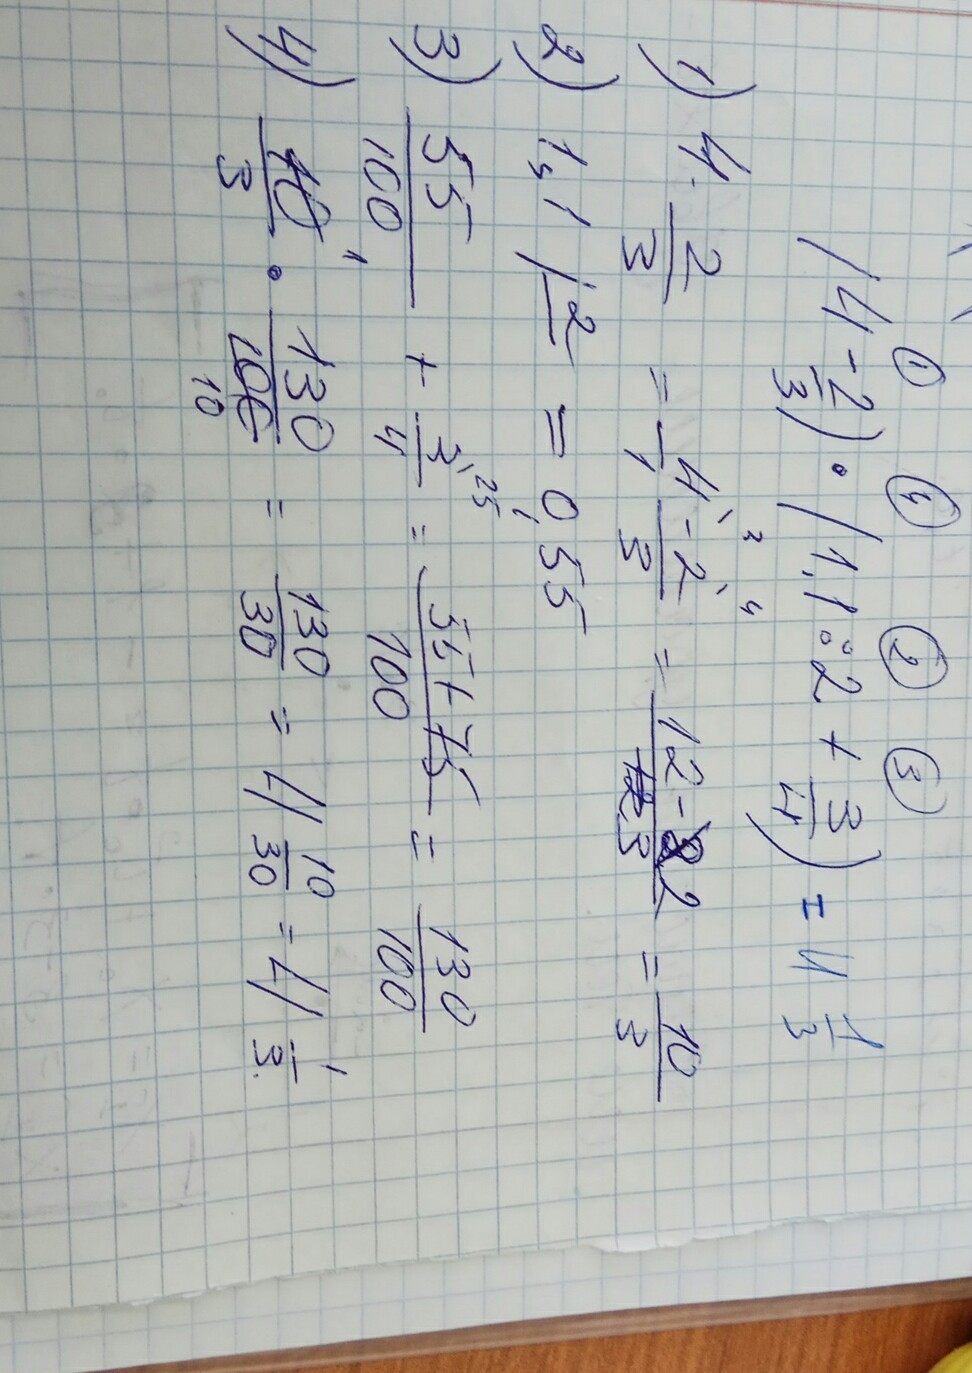 ① ④ ② ③
(4 - 2/3) · (1,1 : 2 + 3/4) = 4 1/3
1) 4 - 2/3 = 4/1 - 2/3 = 12-2/3 = 10/3
2) 1,1 | 2 = 0,55
3) 55/100 + 3/4 = 55+75/100 = 130/100
4) 10/3 · 130/100 = 130/30 = 4 10/30 = 4 1/3